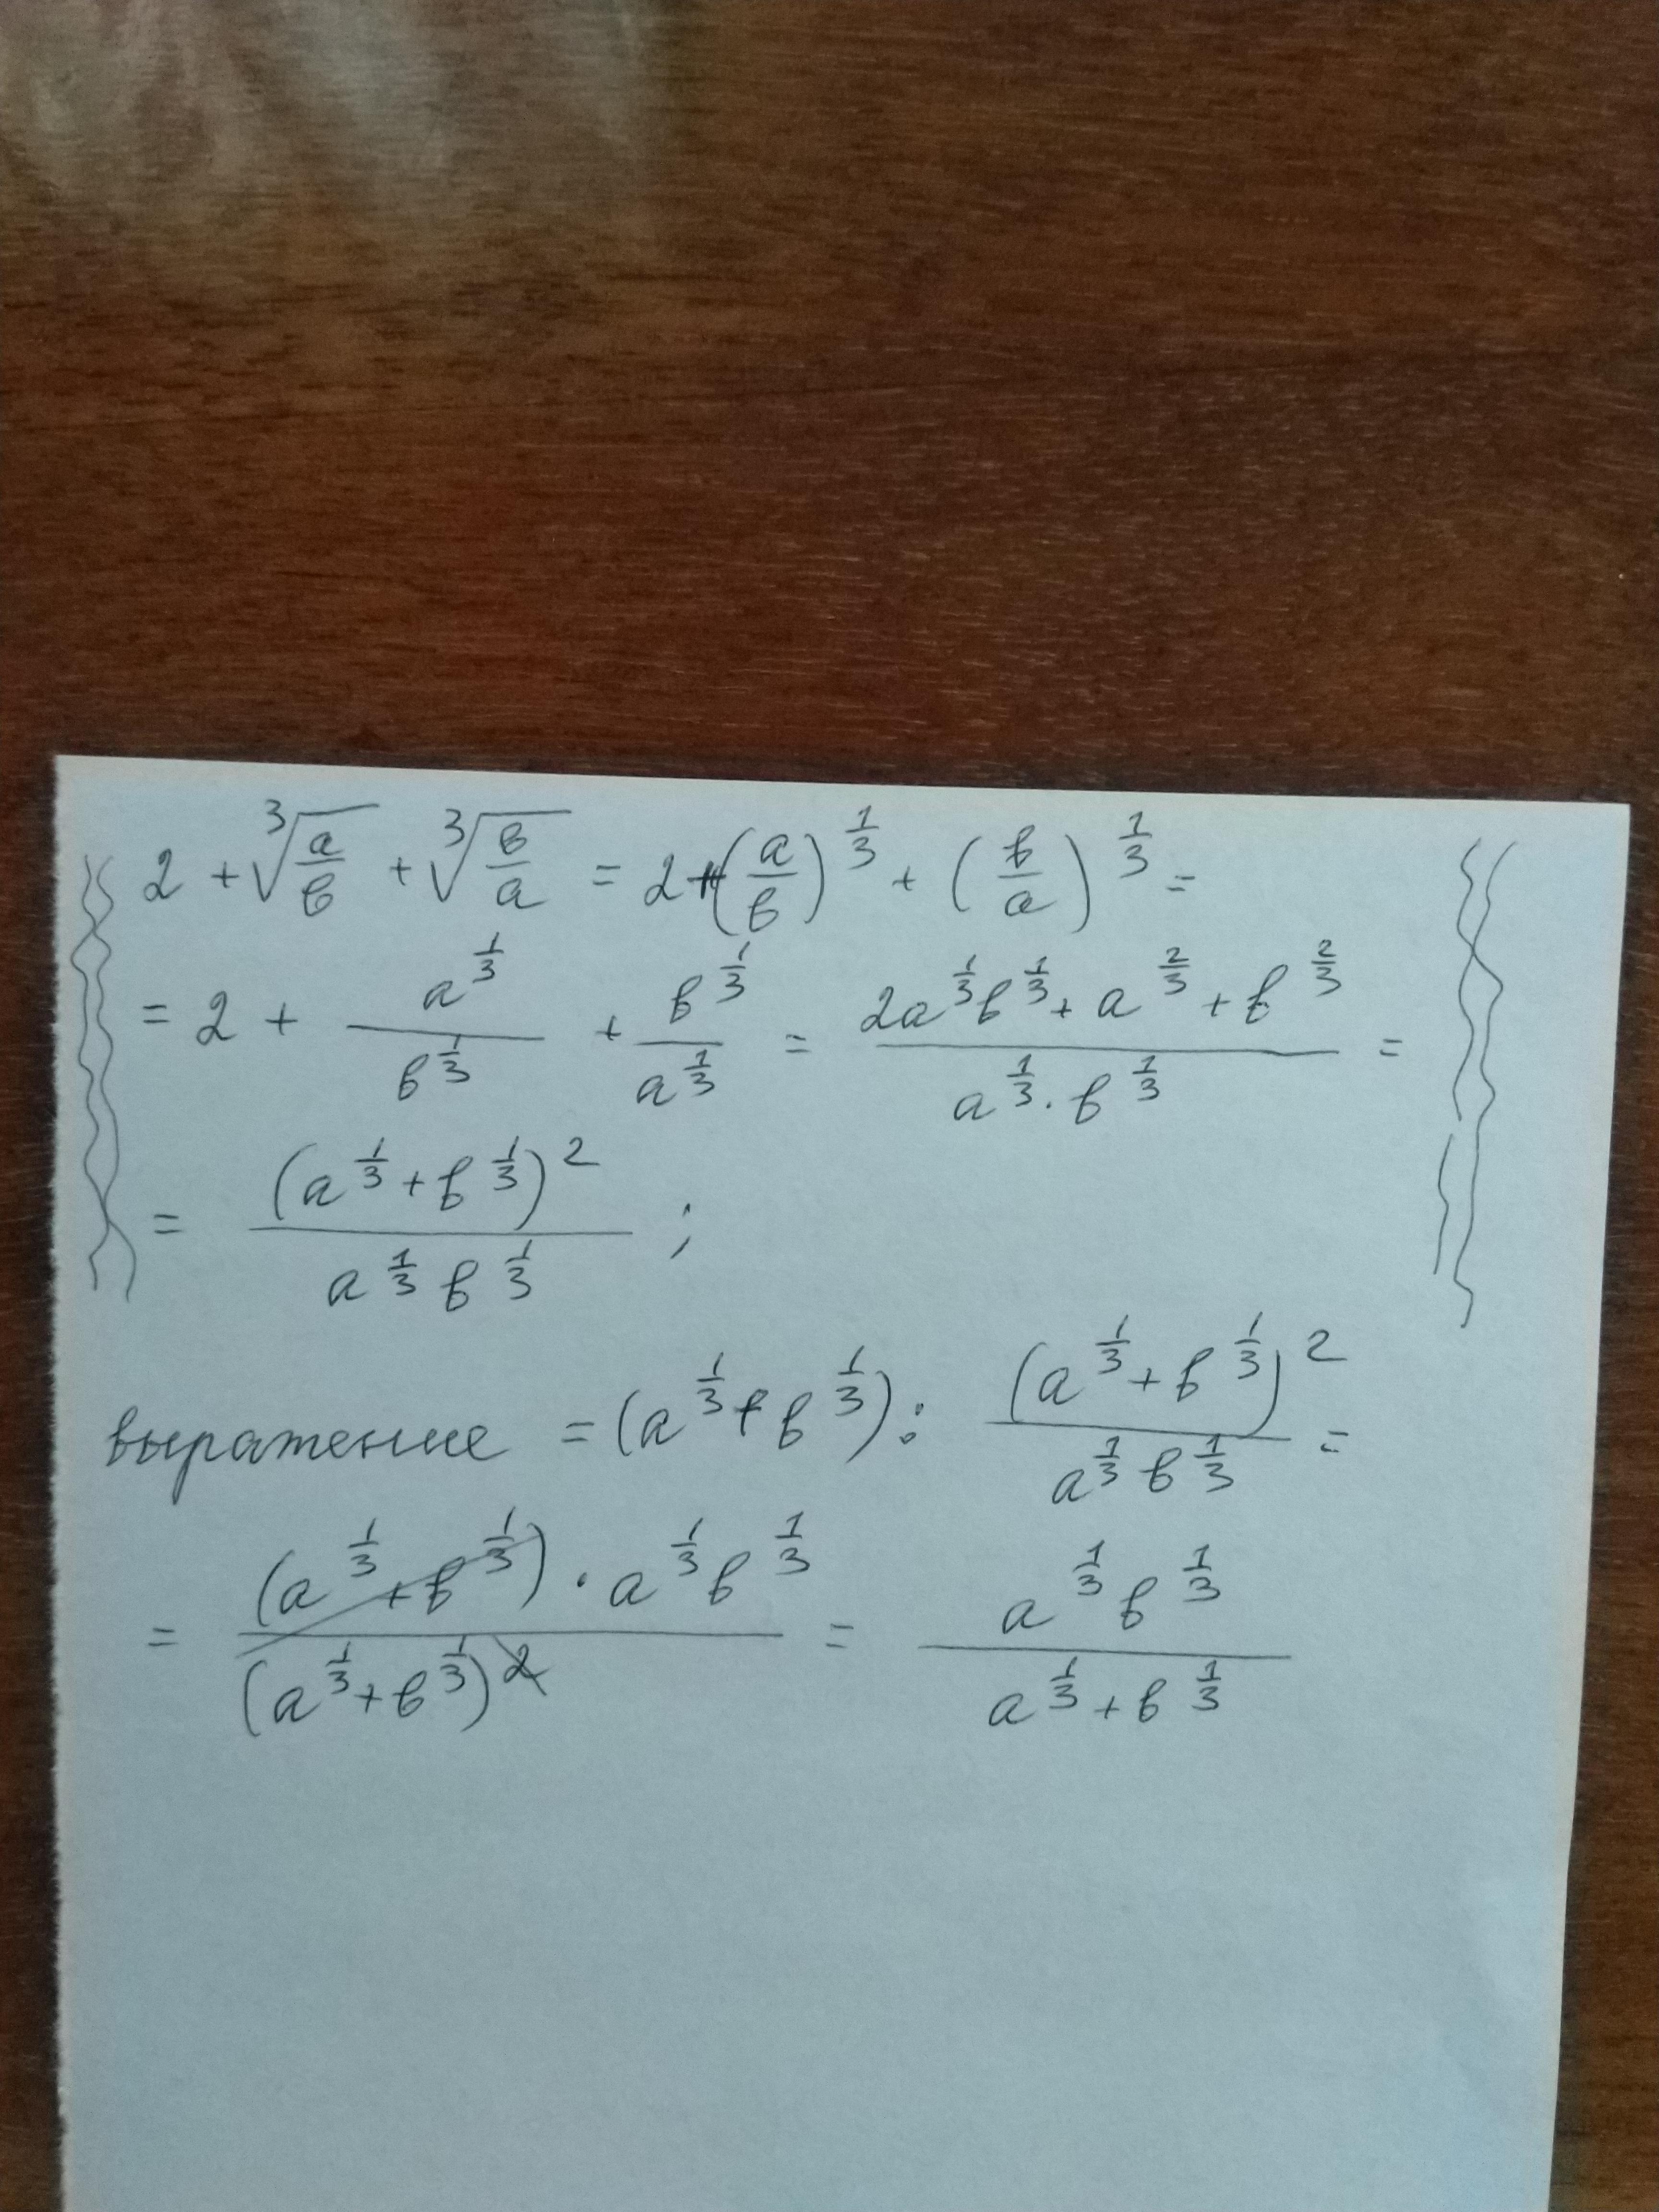 2 + ∛(a/b) + ∛(b/a) = 2 + (a/b)^(1/3) + (b/a)^(1/3) =
= 2 + a^(1/3)/b^(1/3) + b^(1/3)/a^(1/3) = (2a^(1/3)b^(1/3) + a^(2/3) + b^(2/3))/(a^(1/3) · b^(1/3)) =
= (a^(1/3) + b^(1/3))^2/(a^(1/3) b^(1/3)) ;
выражение = (a^(1/3) + b^(1/3)) : (a^(1/3) + b^(1/3))^2/(a^(1/3) b^(1/3)) =
= ((a^(1/3) + b^(1/3)) · a^(1/3) b^(1/3))/(a^(1/3) + b^(1/3))^2 = (a^(1/3) b^(1/3))/(a^(1/3) + b^(1/3))